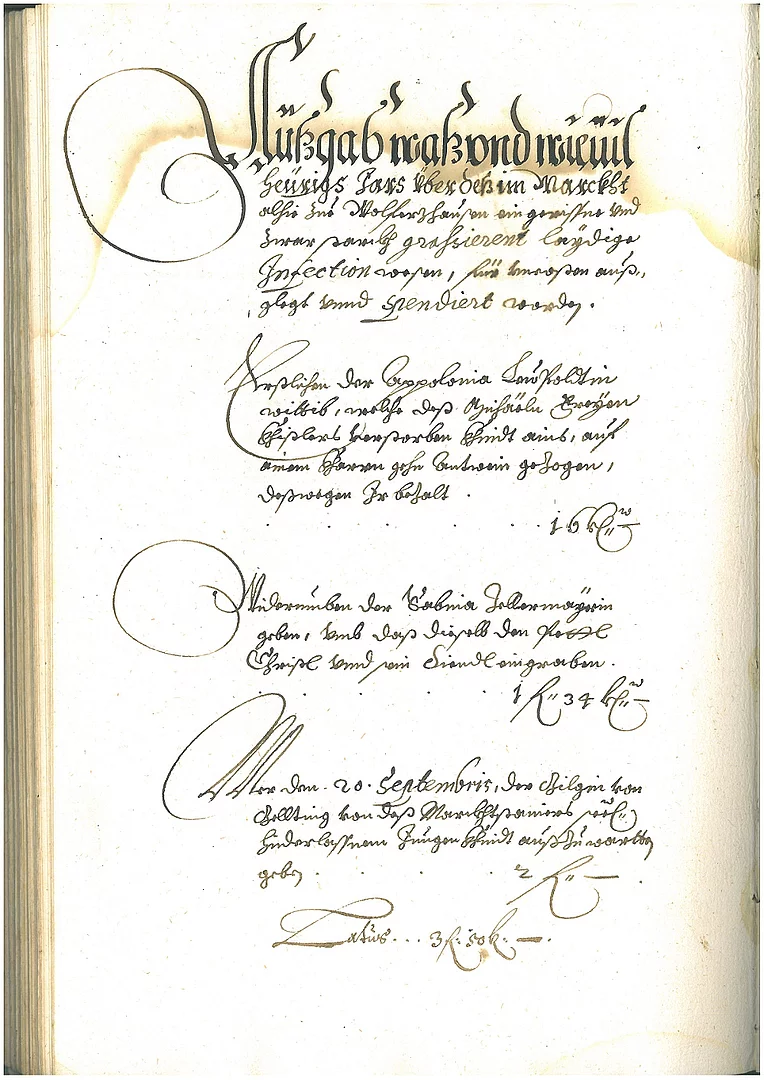 Außgab waß vnd wieuil
heürigs Jars über deß im Marckht
alhie zue Wolfertzhausen eingerissne vnd
zwar starckh grassierent laydige
Infection wesen, für vncosten auß,
glegt vnnd spendiert worden.
Erstlichen der Appolonia Leüpoldtin
wittib, welche deß Michaeln
verstorben Khindt ains, auf
ainem Kharrn gehn gezogen,
deßwegen Ir bezalt
16 kr.
Widerumben der Sabina Zellermayrin
geben, vmb daß dieselb den
Christl vnnd ein eingraben.
1 fl. 34 kr.
Mer den 20. Septembris, der von
Gellting von deß
hinderlassnem Jungen Khindt außzuwartten
geben
2 fl.
Latus... 3 fl. 50 k.